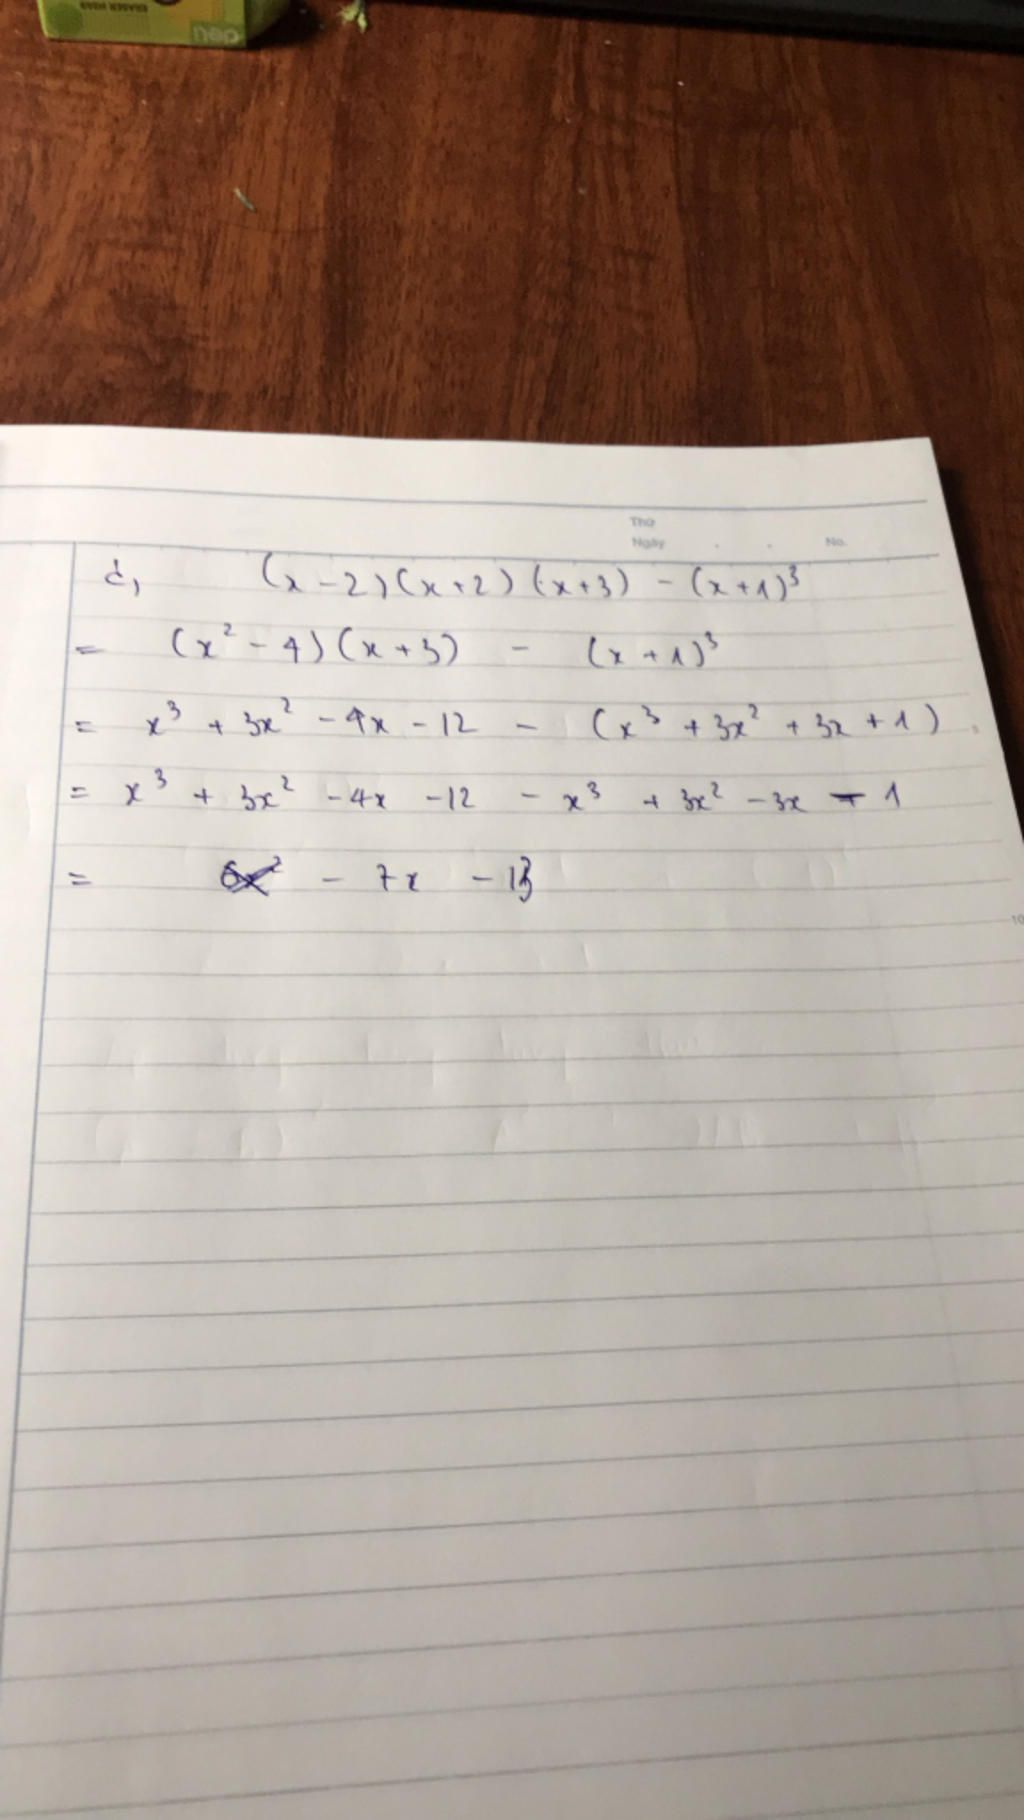 nep
Thứ
Ngày . . No.
c, (x - 2)(x + 2)(x + 3) - (x + 1)³
= (x² - 4)(x + 3) - (x + 1)³
= x³ + 3x² - 4x - 12 - (x³ + 3x² + 3x + 1)
5
= x³ + 3x² - 4x - 12 - x³ + 3x² - 3x - 1
= - 7x - 13
10